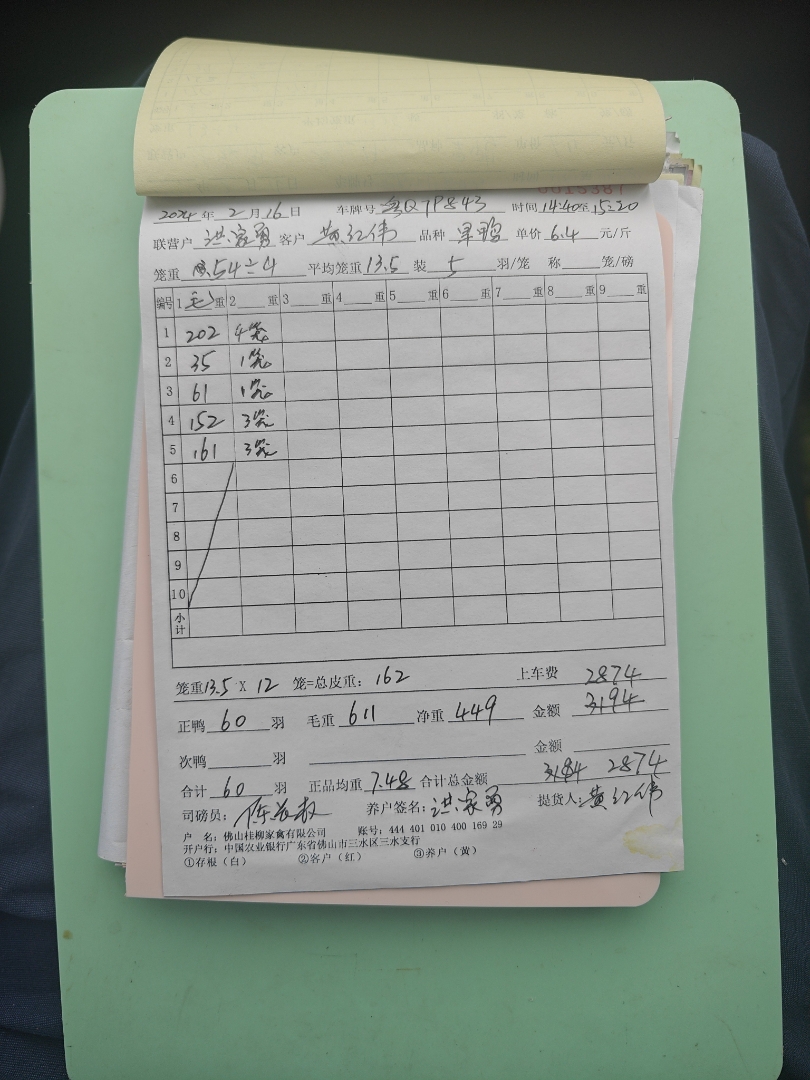 2024年2月16日 车牌号粤Q7P843 时间14:40至15:20
联营户 洪家勇 客户 黄红伟 品种 单价6.4元/斤
笼重 54÷4 平均笼重13.5 装5羽/笼 称 笼/磅
编号 1毛重 2 重 3 重 4 重 5 重 6 重 7 重 8 重 9 重
1 202 4笼
2 35 1笼
3 61 1笼
4 152 3笼
5 161 3笼
6
7
8
9
10
小计
笼重13.5 X 12 笼=总皮重: 162 上车费 2874
正鸭 60 羽 毛重 611 净重 449 金额 3194
次鸭 羽 金额
合计 60 羽 正品均重 7.48 合计总金额 3184 2874
司磅员: 养户签名: 洪家勇 提货人: 黄红伟
户 名: 佛山桂柳家禽有限公司 账号: 444 401 010 400 169 29
开户行: 中国农业银行广东省佛山市三水区三水支行
①存根(白) ②客户(红) ③养户(黄)